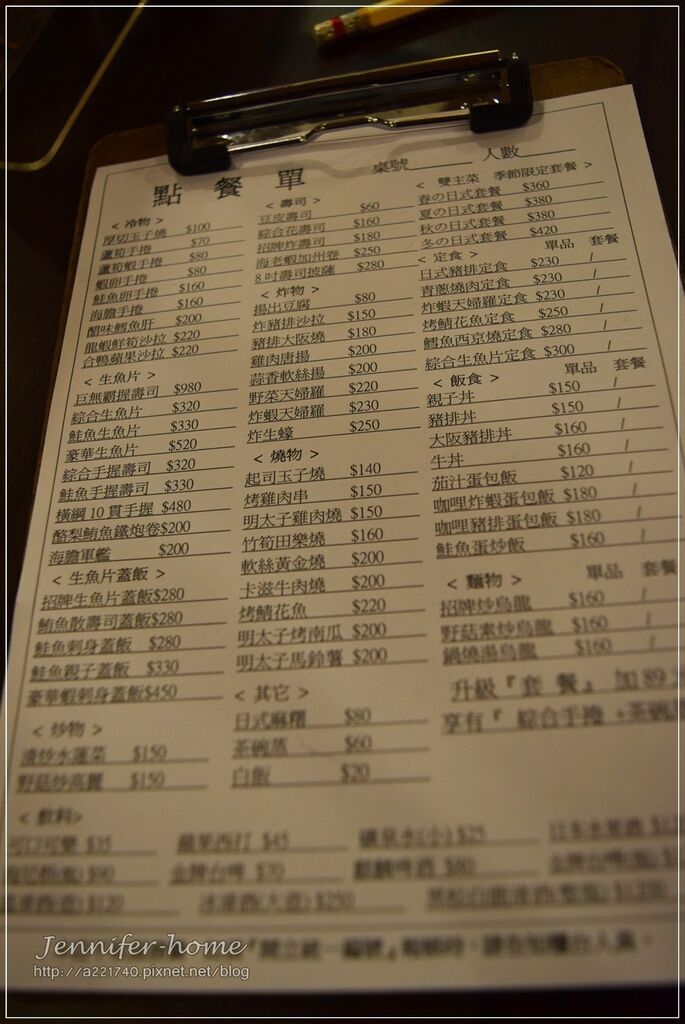 點餐單 桌號 人數
< 冷物 >
厚切玉子燒 $100
蘆筍手捲 $70
蘆筍蝦手捲 $80
蝦卵手捲 $80
鮭魚卵手捲 $160
海膽手捲 $160
醋味鱈魚肝 $200
龍蝦鮮筍沙拉 $220
合鴨蘋果沙拉 $220
< 生魚片 >
巨無霸握壽司 $980
綜合生魚片 $320
鮭魚生魚片 $330
豪華生魚片 $520
綜合手握壽司 $320
鮭魚手握壽司 $330
橫綱10貫手握 $480
酪梨鮪魚鐵炮卷$200
海膽軍艦 $200
< 生魚片蓋飯 >
招牌生魚片蓋飯$280
鮪魚散壽司蓋飯$280
鮭魚刺身蓋飯 $280
鮭魚親子蓋飯 $330
豪華蝦刺身蓋飯$450
< 炒物 >
清炒水蓮菜 $150
野菇炒高麗 $150
< 壽司 >
豆皮壽司 $60
綜合花壽司 $160
招牌炸壽司 $180
海老蝦加州卷 $250
8吋壽司披薩 $280
< 炸物 >
揚出豆腐 $80
炸豬排沙拉 $150
豬排大阪燒 $180
雞肉唐揚 $200
蒜香軟絲揚 $200
野菜天婦羅 $220
炸蝦天婦羅 $230
炸生蠔 $250
< 燒物 >
起司玉子燒 $140
烤雞肉串 $150
明太子雞肉燒 $150
竹筍田樂燒 $160
軟絲黃金燒 $200
卡滋牛肉燒 $200
烤鯖花魚 $220
明太子烤南瓜 $200
明太子馬鈴薯 $200
< 其它 >
日式麻糬 $80
茶碗蒸 $60
白飯 $20
< 雙主菜 季節限定套餐 >
春の日式套餐 $360
夏の日式套餐 $380
秋の日式套餐 $380
冬の日式套餐 $420
< 定食 > 單品 套餐
日式豬排定食 $230 /
青蔥燒肉定食 $230 /
炸蝦天婦羅定食 $230 /
烤鯖花魚定食 $250 /
鱈魚西京燒定食 $280 /
綜合生魚片定食 $300 /
< 飯食 > 單品 套餐
親子丼 $150 /
豬排丼 $150 /
大阪豬排丼 $160 /
牛丼 $160 /
茄汁蛋包飯 $120 /
咖哩炸蝦蛋包飯 $180 /
咖哩豬排蛋包飯 $180 /
鮭魚蛋炒飯 $160 /
< 麵物 > 單品 套餐
招牌炒烏龍 $160 /
野菇素炒烏龍 $160 /
鍋燒湯烏龍 $160 /
升級『套餐』 加89
享有『綜合手捲+茶碗
< 飲料>
可口可樂 $35 蘋果西打 $45 礦泉水(小) $25
金牌台啤 $70 麒麟啤酒 $80
$120 冰清酒(大壺) $250
Jennifer-home
http://a221740.pixnet.net/blog